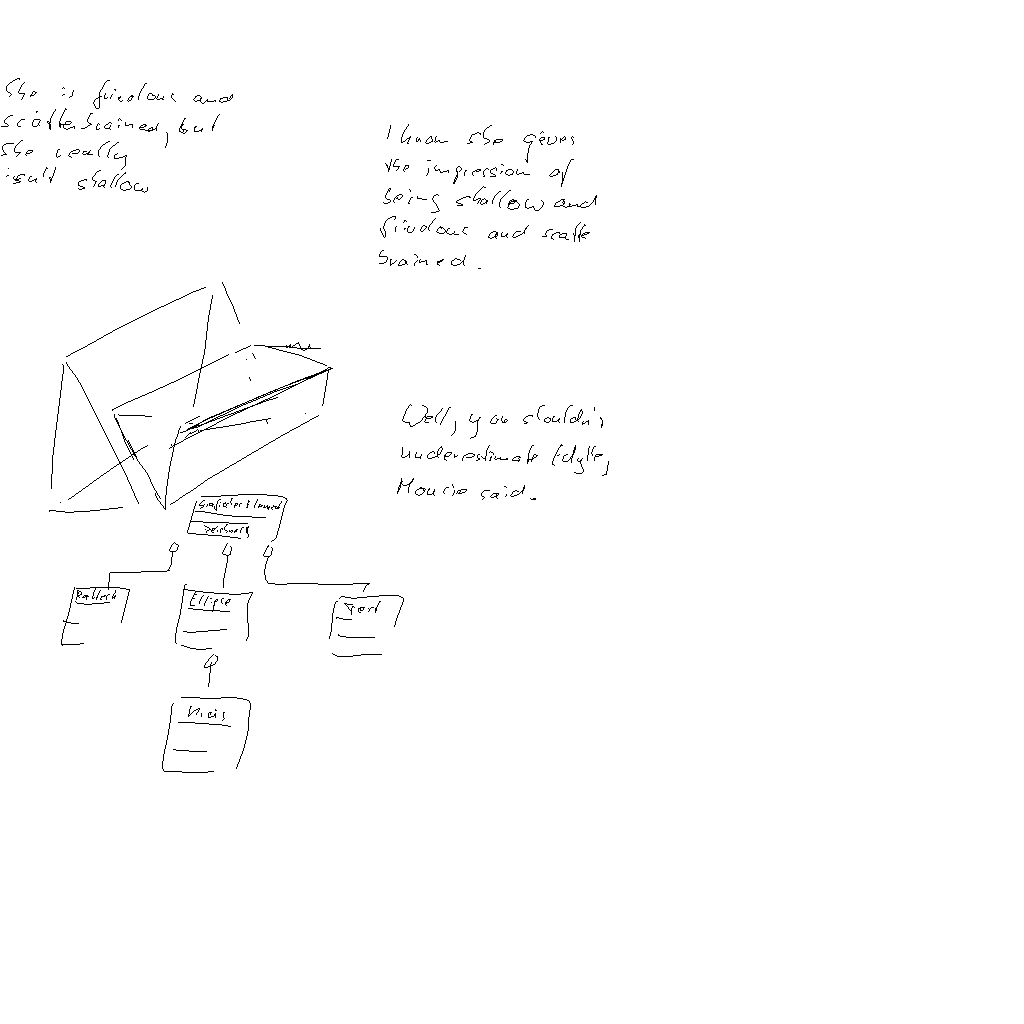 She is frivolous and
scatterbrained, but
she really
isn't shallow
I know she gives
the impression of
being shallow and
frivolous and scatte
brained.
Well, you shouldn't
underestimate
Mourie said.
zeichnen()
Ellipse
Kreis